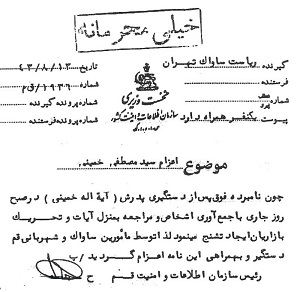 خیلی محرمانه
گیرنده ریاست ساواک تهران
فرستنده
پیوست یکنفر همراه دارد
نخست وزیری
سازمان اطلاعات و امنیت کشور
تاریخ ۴۳/۸/۱۳
شماره ۱۹۳۶/ق م
شماره پرونده گیرنده
شماره پرونده فرستنده
موضوع اعزام سید مصطفی خمینی
چون نامبرده فوق پس از دستگیری پدرش (آیة اله خمینی) در صبح
روز جاری با جمع آوری اشخاص و مراجعه بمنزل آیات و تحریک
بازاریان ایجاد تشنج مینمود لذا توسط مأمورین ساواک و شهربانی قم
دستگیر و بهمراهی این نامه اعزام گردید /ب
رئیس سازمان اطلاعات و امنیت قم